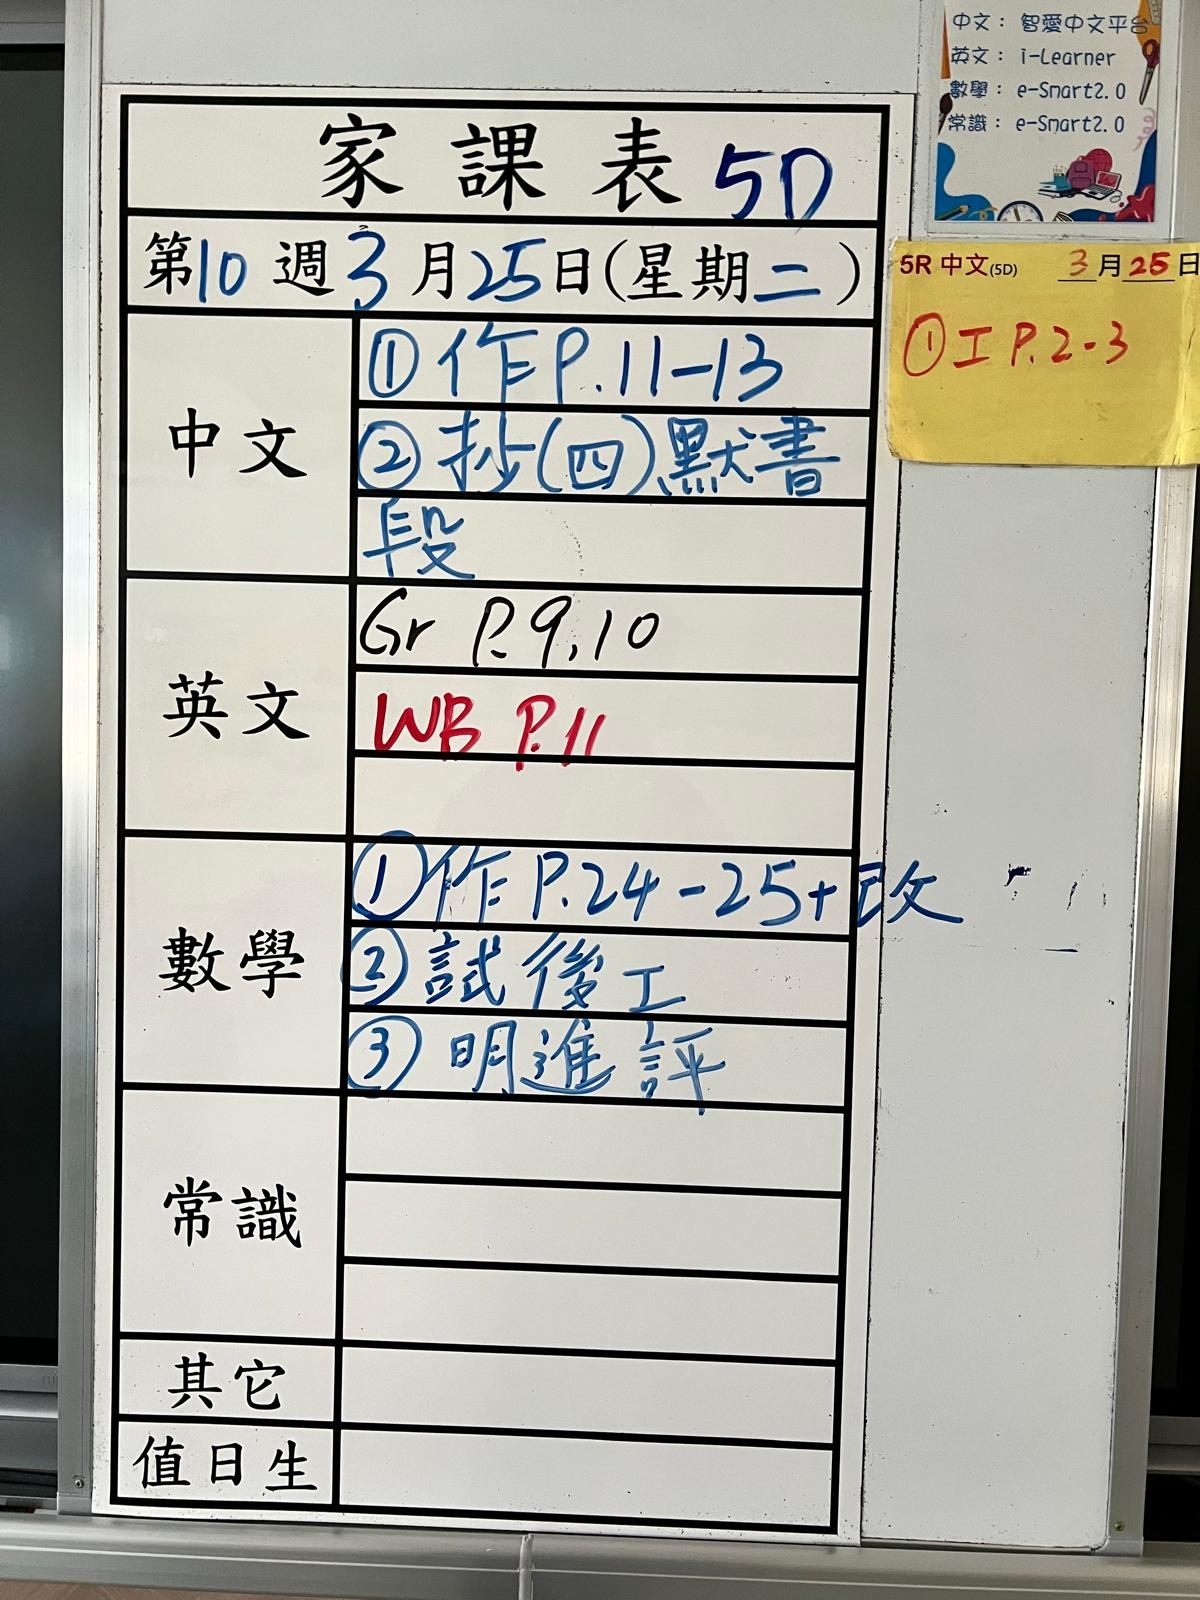 中文： 智愛中文平台
英文： i-Learner
數學： e-Smart2.0
常識： e-Smart2.0
家課表 5D
第10週3月25日(星期二)
5R 中文(5D) 3月25日
① 工 P.2-3
中文
① 作 P.11-13
② 抄(四)默書
段
英文
Gr P.9,10
WB P.11
數學
① 作 P.24-25+改
② 試後工
③ 明進評
常識
其它
值日生